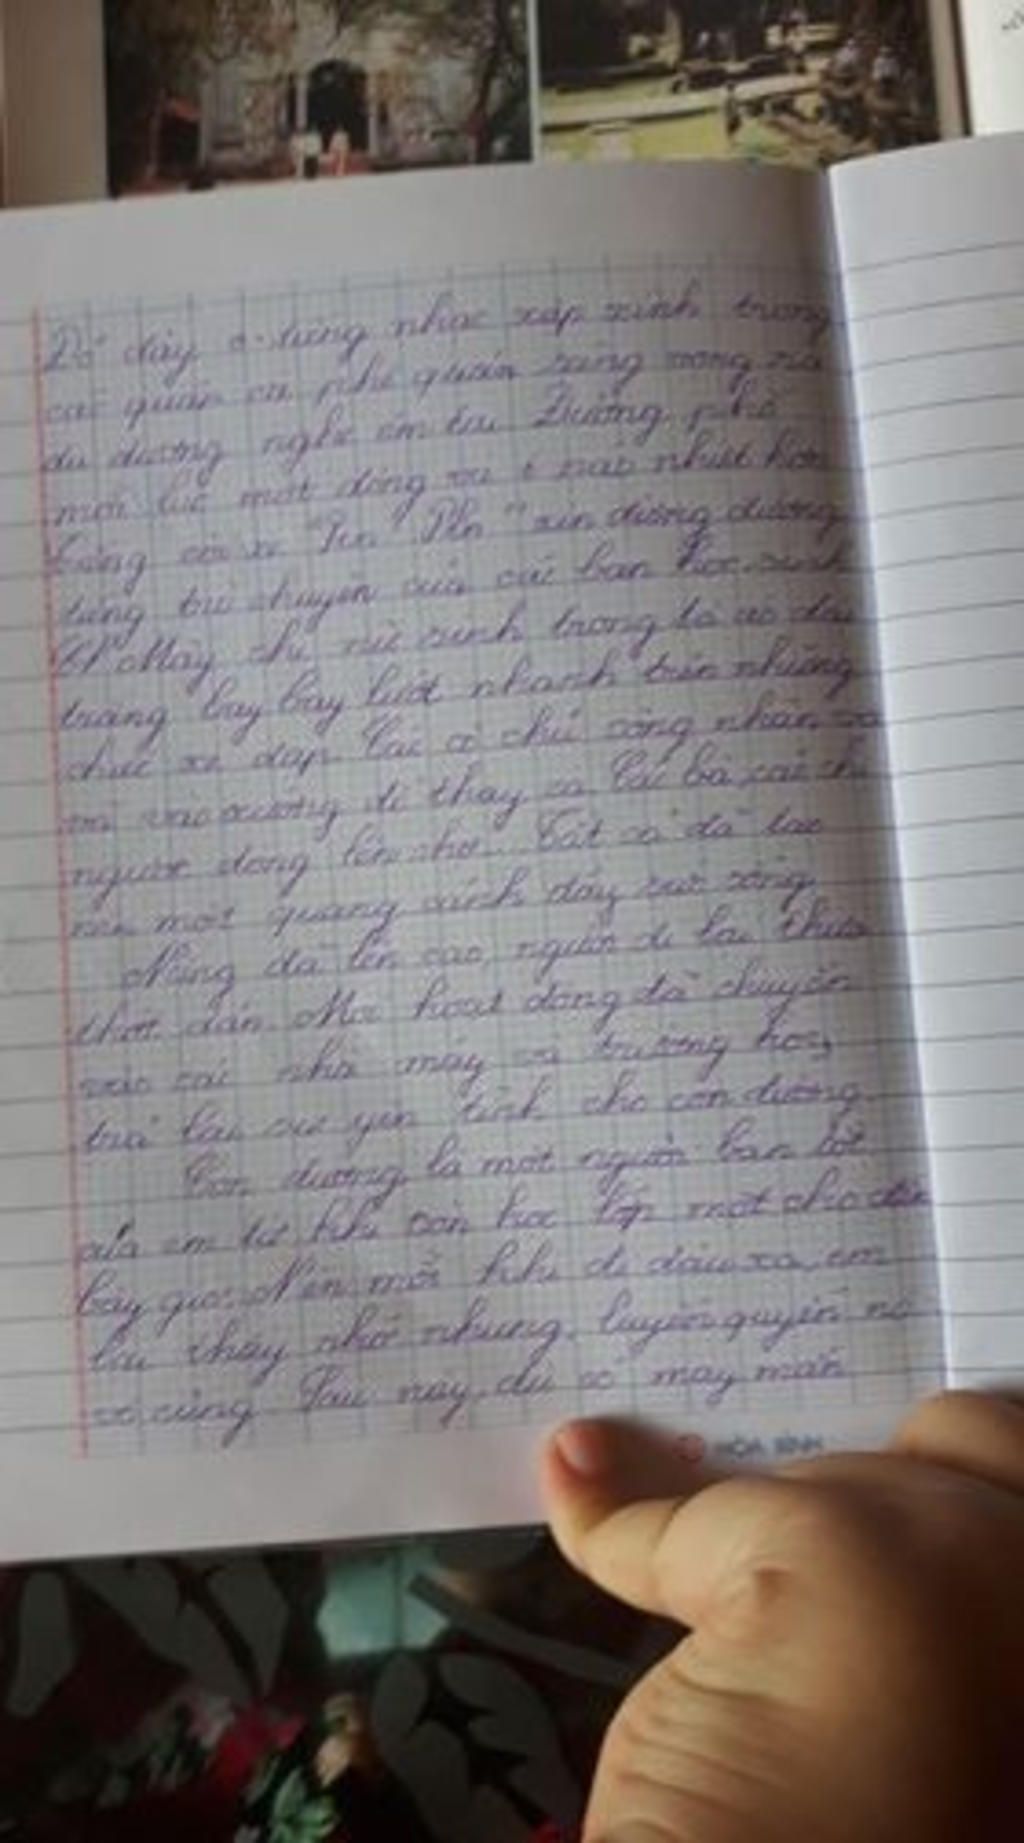 Đó đây tiếng nhạc xập xình trong
các quán cà phê quán
du dương nghe êm tai Đường phố
mỗi lúc một đông vui náo nhiệt hơn
Tiếng còi xe "Pin" "Pin" xin đường
tiếng trò chuyện của các bạn học sinh
Mấy chị nữ sinh trong tà áo dài
trắng bay bay lướt nhanh trên những
chiếc xe đạp Các cô chú công nhân
vào xưởng để thay ca Các bà, các chị
ngược dòng lên chợ. Tất cả đã tạo
nên một quang cảnh đầy sức sống
Nắng đã lên cao, người đi lại thưa
thớt dần Mọi hoạt động đã chuyển
vào các nhà máy và trường học,
trả lại sự yên tĩnh cho con đường
Con đường là một người bạn tốt
của em từ khi còn học lớp một cho đến
bây giờ. Nên mỗi khi đi đâu xa, em
lại thấy nhớ nhung, luyến quyến nó
vô cùng Sau này, dù có may mắn
HÒA BÌNH